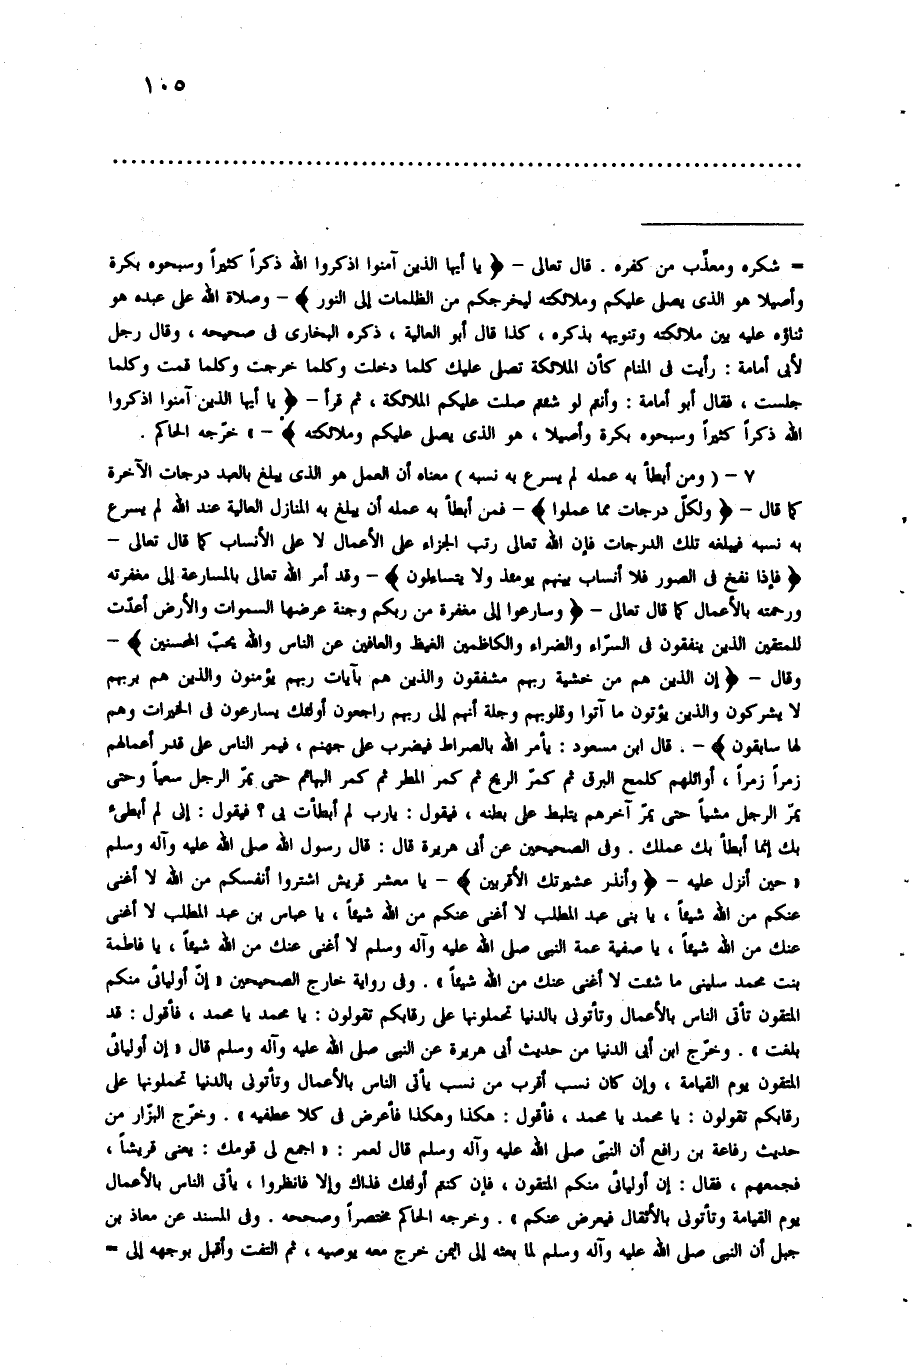 ١٠٥
= شكره ومعذّب من كفره . قال تعالى – ﴿ يا أيها الذين آمنوا اذكروا الله ذكراً كثيراً وسبحوه بكرة
وأصيلا هو الذى يصلى عليكم وملائكته ليخرجكم من الظلمات إلى النور ﴾ – وصلاة الله على عبده هو
ثناؤه عليه بين ملائكته وتنويهه بذكره ، كذا قال أبو العالية ، ذكره البخارى فى صحيحه ، وقال رجل
لأبى أمامة : رأيت فى المنام كأن الملائكة تصلى عليك كلما دخلت وكلما خرجت وكلما قمت وكلما
جلست ، فقال أبو أمامة : وأنتم لو شئتم صلت عليكم الملائكة ، ثم قرأ – ﴿ يا أيها الذين آمنوا اذكروا
الله ذكراً كثيراً وسبحوه بكرة وأصيلا ، هو الذى يصلى عليكم وملائكته ﴾ – » خرّجه الحاكم .
٧ – ( ومن أبطأ به عمله لم يسرع به نسبه ) معناه أن العمل هو الذى يبلغ بالعبد درجات الآخرة
كما قال – ﴿ ولكلّ درجات مما عملوا ﴾ – فمن أبطأ به عمله أن يبلغ به المنازل العالية عند الله لم يسرع
به نسبه فيبلغه تلك الدرجات فإن الله تعالى رتب الجزاء على الأعمال لا على الأنساب كما قال تعالى –
﴿ فإذا نفخ فى الصور فلا أنساب بينهم يومئذ ولا يتساءلون ﴾ – وقد أمر الله تعالى بالمسارعة إلى مغفرته
ورحمته بالأعمال كما قال تعالى – ﴿ وسارعوا إلى مغفرة من ربكم وجنة عرضها السموات والأرض أعدّت
للمتقين الذين ينفقون فى السرّاء والضراء والكاظمين الغيظ والعافين عن الناس والله يحبّ المحسنين ﴾ –
وقال – ﴿ إن الذين هم من خشية ربهم مشفقون والذين هم بآيات ربهم يؤمنون والذين هم بربهم
لا يشركون والذين يؤتون ما آتوا وقلوبهم وجلة أنهم إلى ربهم راجعون أولئك يسارعون فى الخيرات وهم
لها سابقون ﴾ – . قال ابن مسعود : يأمر الله بالصراط فيضرب على جهنم ، فيمر الناس على قدر أعمالهم
زمراً زمراً ، أوائلهم كلمح البرق ثم كمرّ الريح ثم كمر المطر ثم كمر البهائم حتى يمرّ الرجل سعياً وحتى
يمرّ الرجل مشياً حتى يمرّ آخرهم يتلبط على بطنه ، فيقول : يارب لم أبطأت بى ؟ فيقول : إنى لم أبطىء
بك إنما أبطأ بك عملك . وفى الصحيحين عن أبى هريرة قال : قال رسول الله صلى الله عليه وآله وسلم
« حين أنزل عليه – ﴿ وأنذر عشيرتك الأقربين ﴾ – يا معشر قريش اشتروا أنفسكم من الله لا أغنى
عنكم من الله شيئاً ، يا بنى عبد المطلب لا أغنى عنكم من الله شيئاً ، يا عباس بن عبد المطلب لا أغنى
عنك من الله شيئاً ، يا صفية عمة النبى صلى الله عليه وآله وسلم لا أغنى عنك من الله شيئاً ، يا فاطمة
بنت محمد سلينى ما شئت لا أغنى عنك من الله شيئاً » . وفى رواية خارج الصحيحين « إنّ أوليائى منكم
المتقون تأتى الناس بالأعمال وتأتونى بالدنيا تحملونها على رقابكم تقولون : يا محمد يا محمد ، فأقول : قد
بلغت » . وخرّج ابن أبى الدنيا من حديث أبى هريرة عن النبى صلى الله عليه وآله وسلم قال « إن أوليائى
المتقون يوم القيامة ، وإن كان نسب أقرب من نسب يأتى الناس بالأعمال وتأتونى بالدنيا تحملونها على
رقابكم تقولون : يا محمد يا محمد ، فأقول : هكذا وهكذا فأعرض فى كلا عطفيه » . وخرّج البزّار من
حديث رفاعة بن رافع أن النبىّ صلى الله عليه وآله وسلم قال لعمر : « اجمع لى قومك : يعنى قريشاً ،
فجمعهم ، فقال : إن أوليائى منكم المتقون ، فإن كنتم أولئك فذاك وإلا فانظروا ، يأتى الناس بالأعمال
يوم القيامة وتأتونى بالأثقال فيعرض عنكم » . وخرجه الحاكم مختصراً وصححه . وفى المسند عن معاذ بن
جبل أن النبى صلى الله عليه وآله وسلم لما بعثه إلى اليمن خرج معه يوصيه ، ثم التفت وأقبل بوجهه إلى =